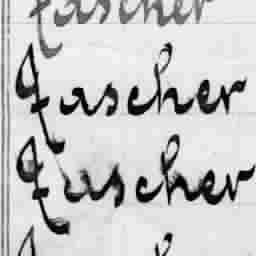 Rascher
Rascher
Rascher